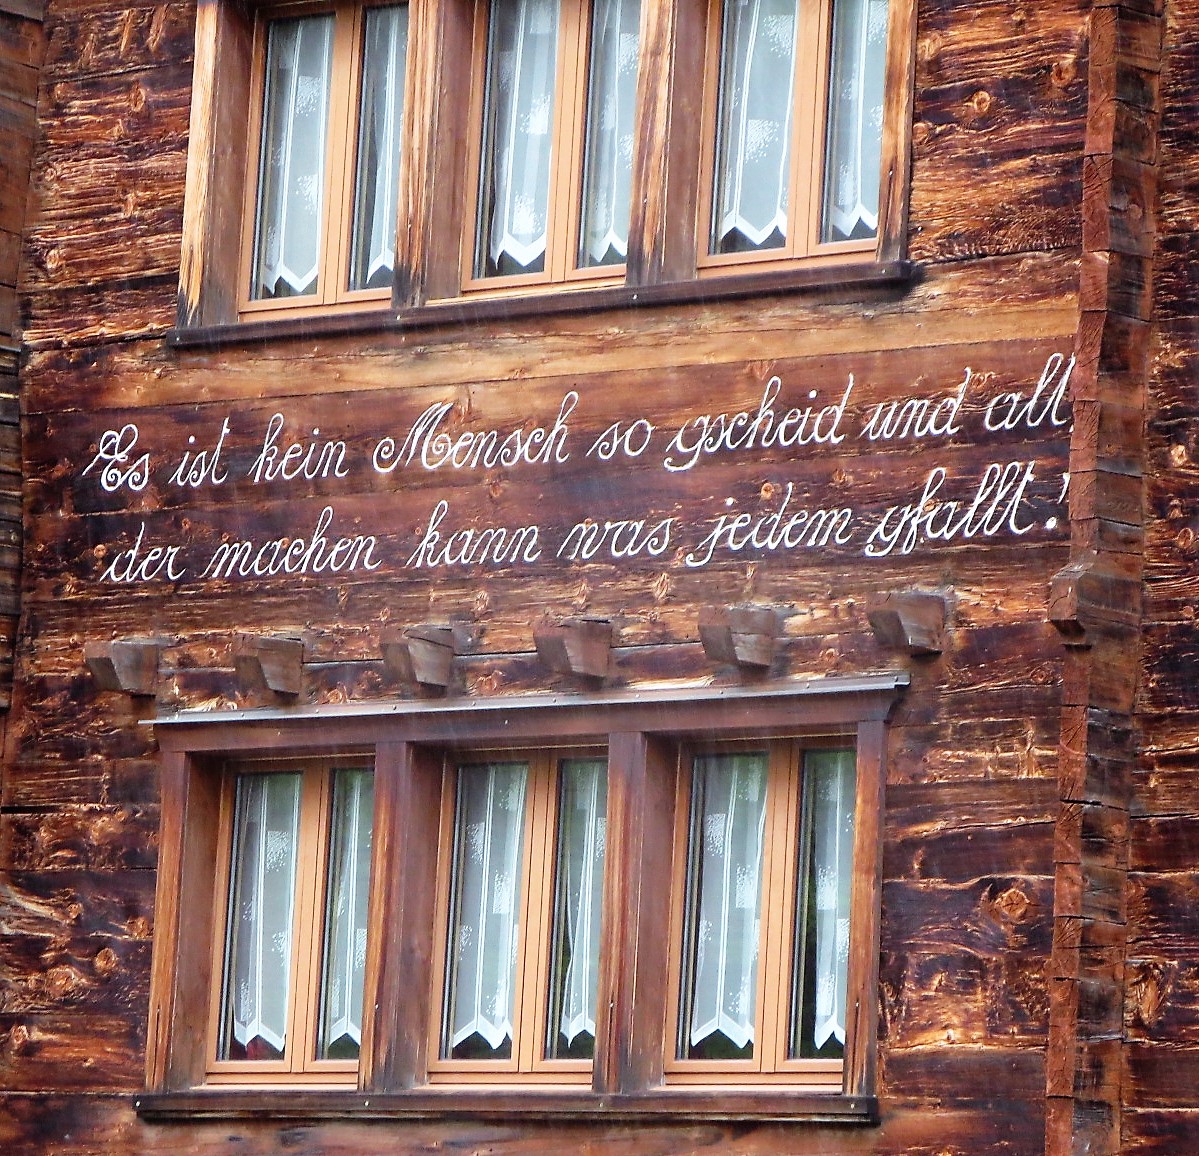 Es ist kein Mensch so gscheid und alt,
der machen kann was jedem gfallt!